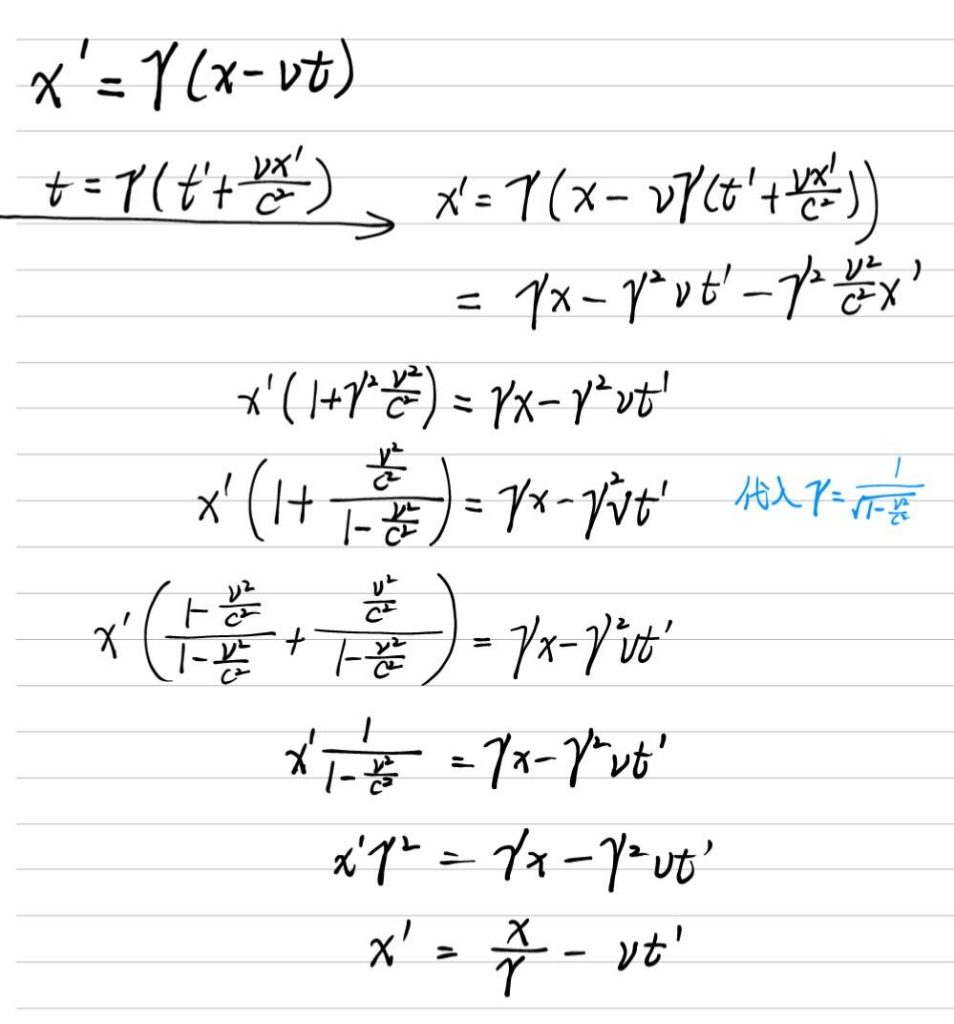 x' = γ(x - vt)
t = γ(t' + vx'/c²) → x' = γ(x - vγ(t' + vx'/c²))
= γx - γ²vt' - γ² v²/c² x'
x'(1 + γ² v²/c²) = γx - γ²vt'
x'(1 + (v²/c²)/(1 - v²/c²)) = γx - γ²vt' 代入 γ = 1/√(1 - v²/c²)
x'((1 - v²/c²)/(1 - v²/c²) + (v²/c²)/(1 - v²/c²)) = γx - γ²vt'
x' 1/(1 - v²/c²) = γx - γ²vt'
x'γ² = γx - γ²vt'
x' = x/γ - vt'